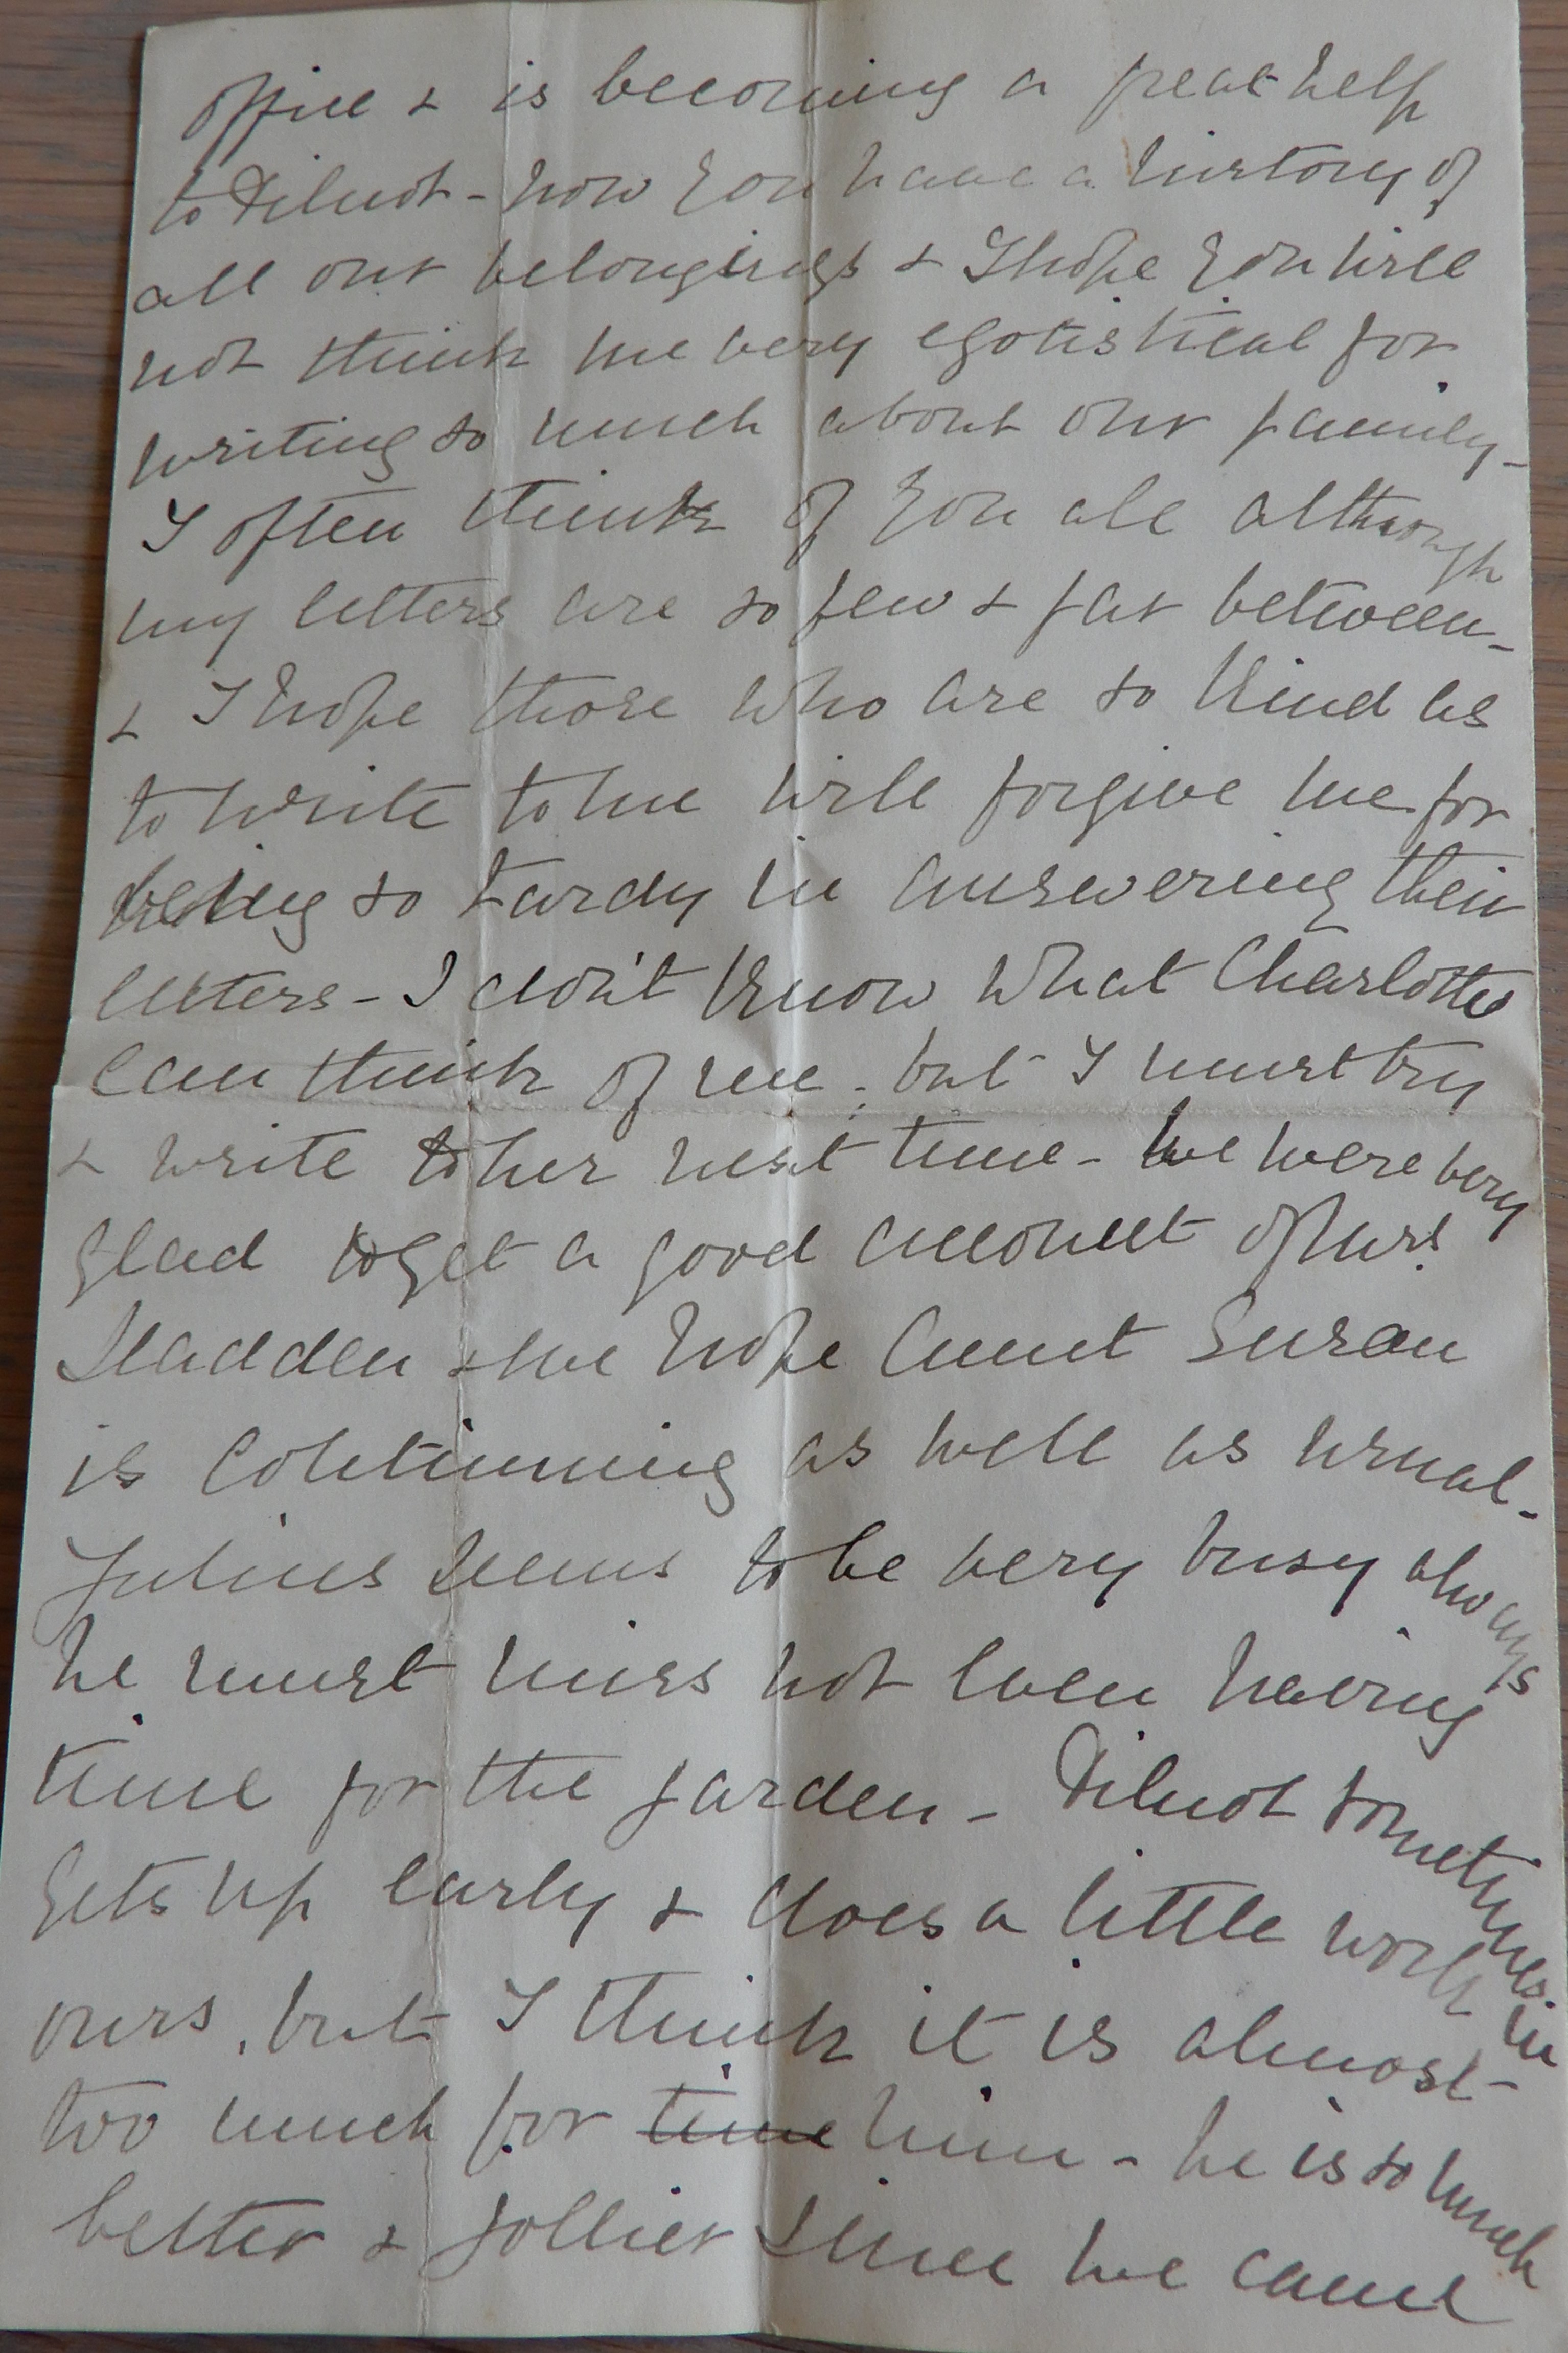 office & is becoming a great help
to Dilnot - now you have a history of
all our belongings & I hope you will
not think me very egotistical for
writing so much about our family -
I often think of you all although
my letters are so few & far between -
& I hope those who are so kind as
to write to me will forgive me for
being so tardy in answering their
letters - I don't know what Charlotte
can think of me - but I must try
& write to her next time - We were very
glad to get a good account of Mrs
Sladden & we hope Aunt Susan
is continuing as well as usual -
Julius seems to be very busy always
he must miss not even having
time for the garden - Dilnot sometimes
gets up early & does a little work in
ours, but I think it is almost
too much for time him - he is so much
better & jollier since we came